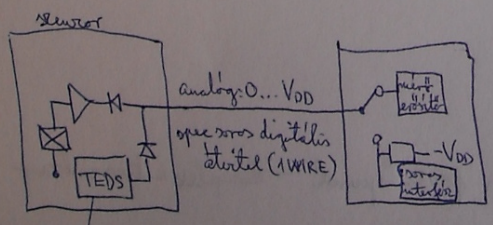 szenzor
analóg: 0...VDD
spec soros digitális
átvitel (1WIRE)
TEDS
mérő
erősítő
-VDD
soros
interfész